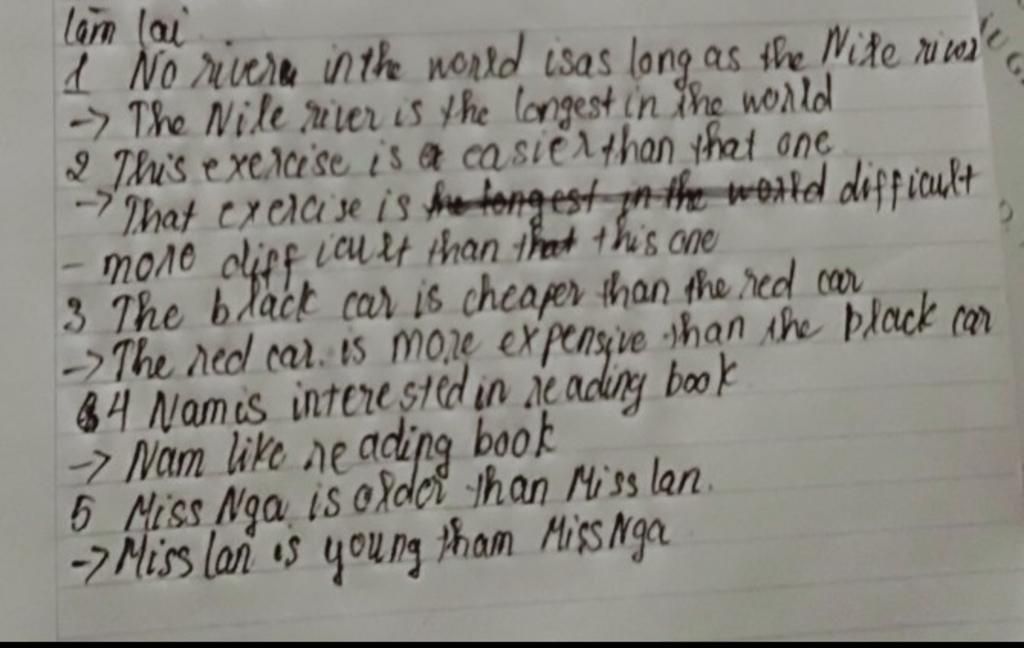 làm lại
1 No rivera in the world is as long as the Nile river
-> The Nile river is the longest in the world
2 This exercise is a easier than that one
-> That exercise is the longest in the world difficult
- more difficult than that this one
3 The black car is cheaper than the red car
-> The red car. is more expensive than the black car
4 Nam is interested in reading book
-> Nam like reading book
5 Miss Nga is older than Miss lan.
-> Miss lan is young tham Miss Nga